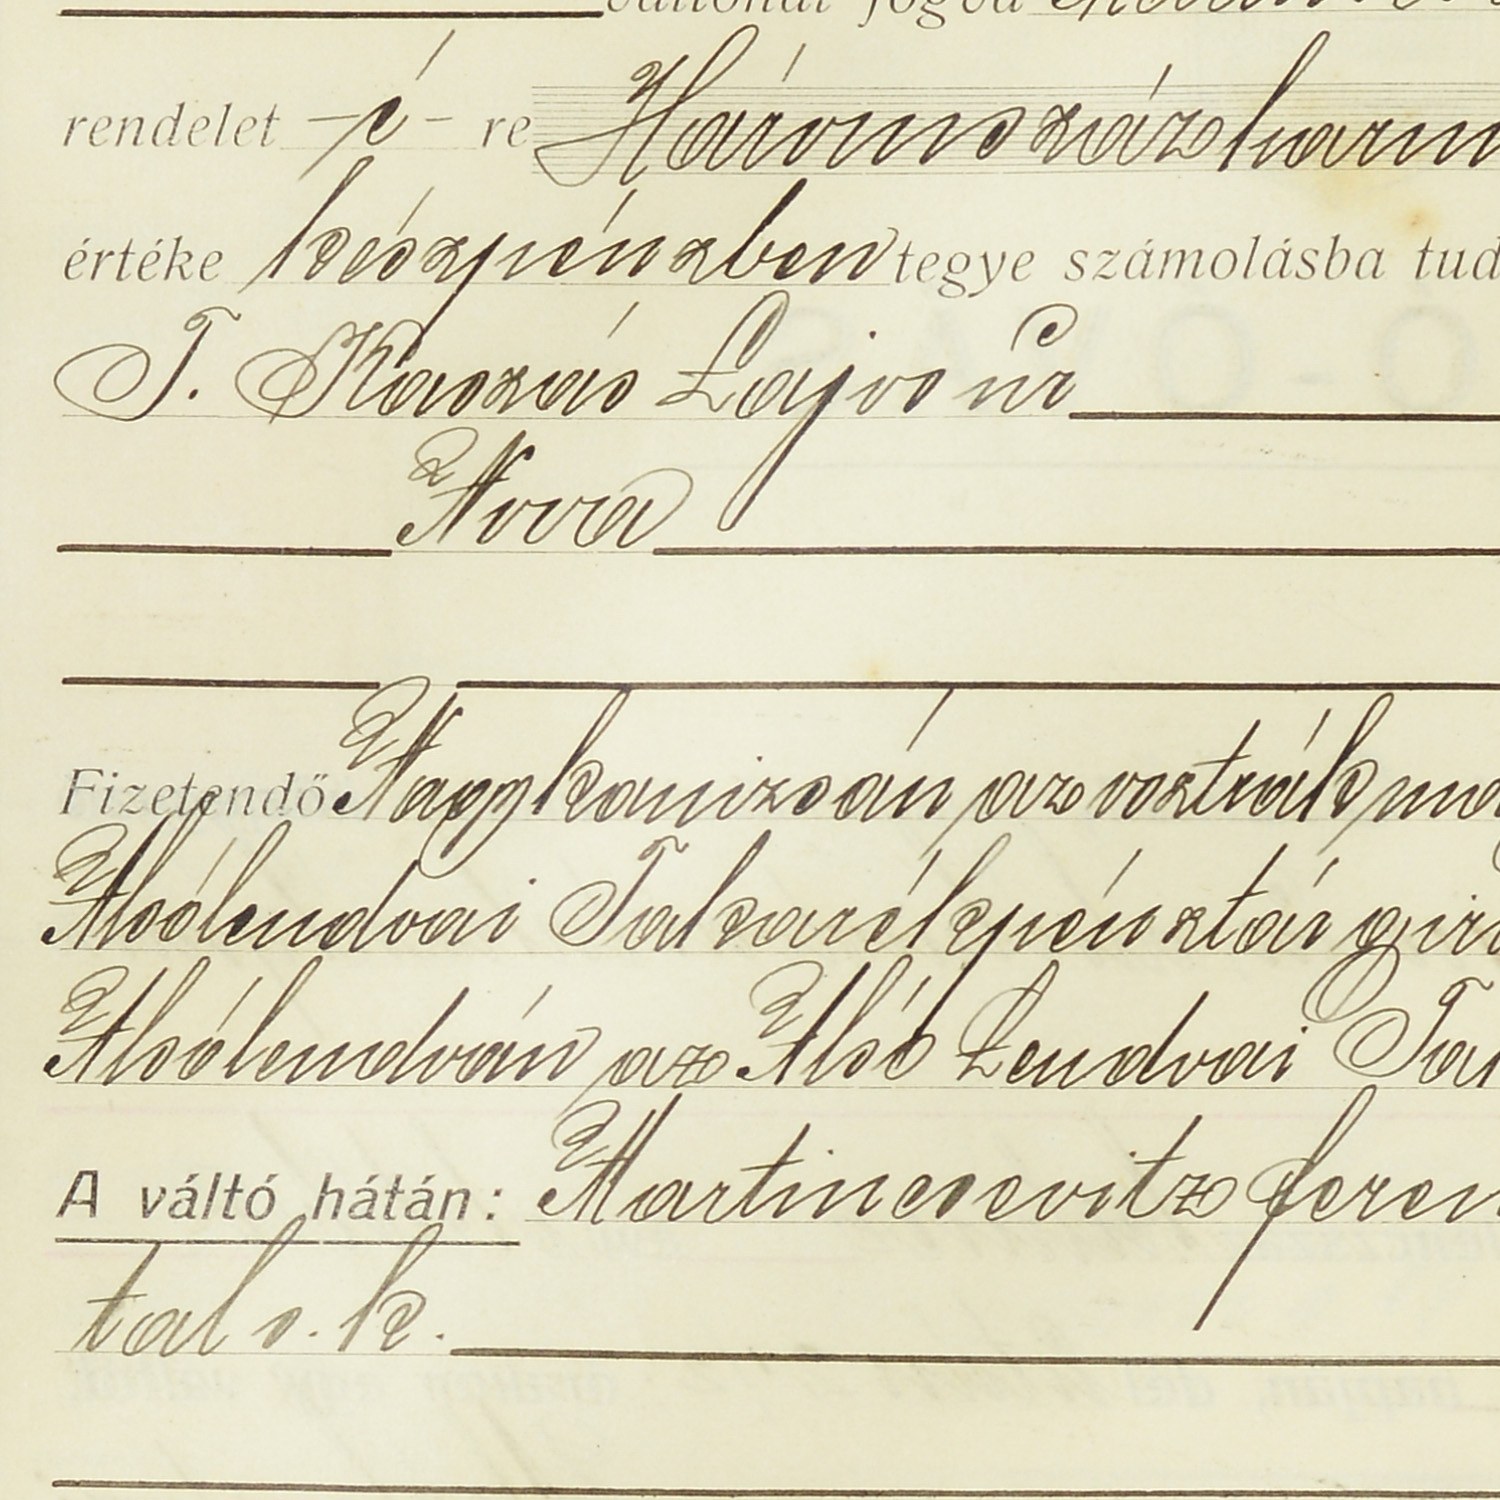 váltónál fogva
rendelet –é– re Háromszázharm
értéke készpénzben tegye számolásba tud
T. Kaszás Lajos úr
Nova
Fizetendő Nagykanizsán az osztrák ma
Alsólendvai Takarékpénztár gir
Alsólendván az Alsó Lendvai Ta
A váltó hátán: Martincsevitz feren
tal s. k.